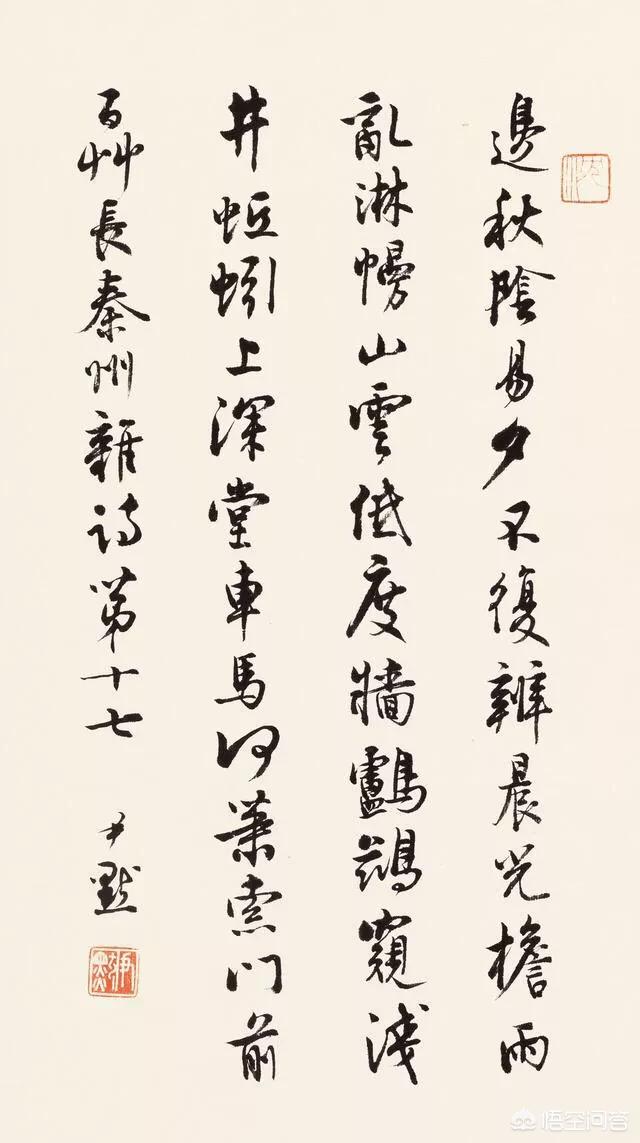 邊秋陰易夕不復辨晨光檐雨
亂淋幔山雲低度牆鸕鷀窺淺
井蚯蚓上深堂車馬何蕭索門前
百艸長秦州雜詩第十七
尹默
尹默
悟空问答